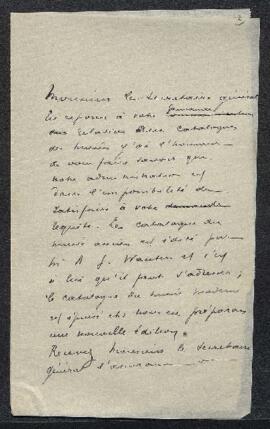 2
Monsieur le Secrétaire général
En réponse à votre demande
aux relations des catalogues
des musées j'ai l'honneur
de vous faire savoir que
notre administration est
dans l'impossibilité de
satisfaire à votre demande
requête. Le catalogue du
musée ancien est édité par
Mr A. J. Wauters et c'est
à lui qu'il faut s'adresser;
le catalogue du musée moderne
est épuisé et nous en préparons
une nouvelle édition.
Recevez Monsieur le Secrétaire
général l'assurance